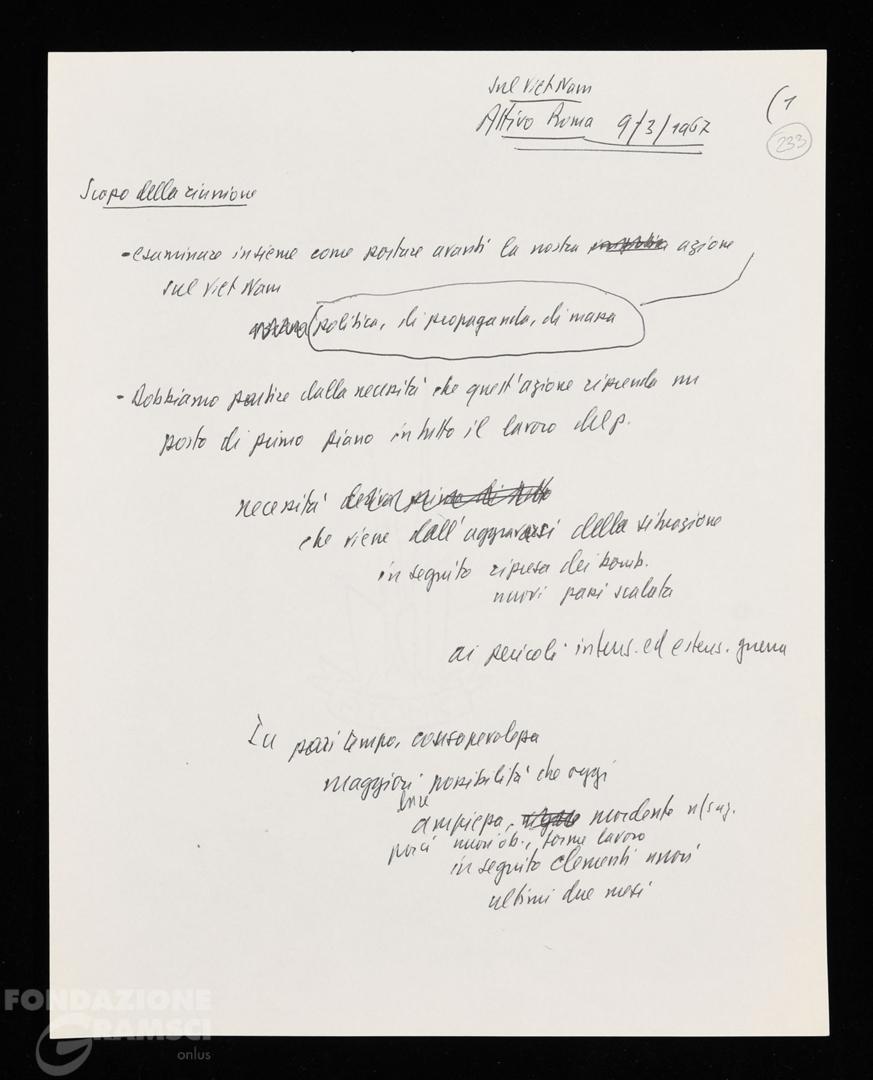 sul Viet Nam
Attivo Roma 9/3/1967
(1
233
Scopo della riunione
- esaminare insieme come portare avanti la nostra azione
sul Viet Nam
politica, di propaganda, di massa
- Dobbiamo partire dalla necessità che quest'azione riprenda un
posto di primo piano in tutto il lavoro del p.
necessità
che viene dall'aggravarsi della situazione
in seguito ripresa dei bomb.
nuovi passi scalata
ai pericoli intens. ed estens. guerra
In pari tempo, consapevolezza
maggiori possibilità che oggi
ampiezza, mordente
nuovi ob., forme lavoro
in seguito elementi nuovi
ultimi due mesi
FONDAZIONE
GRAMSCI
onlus